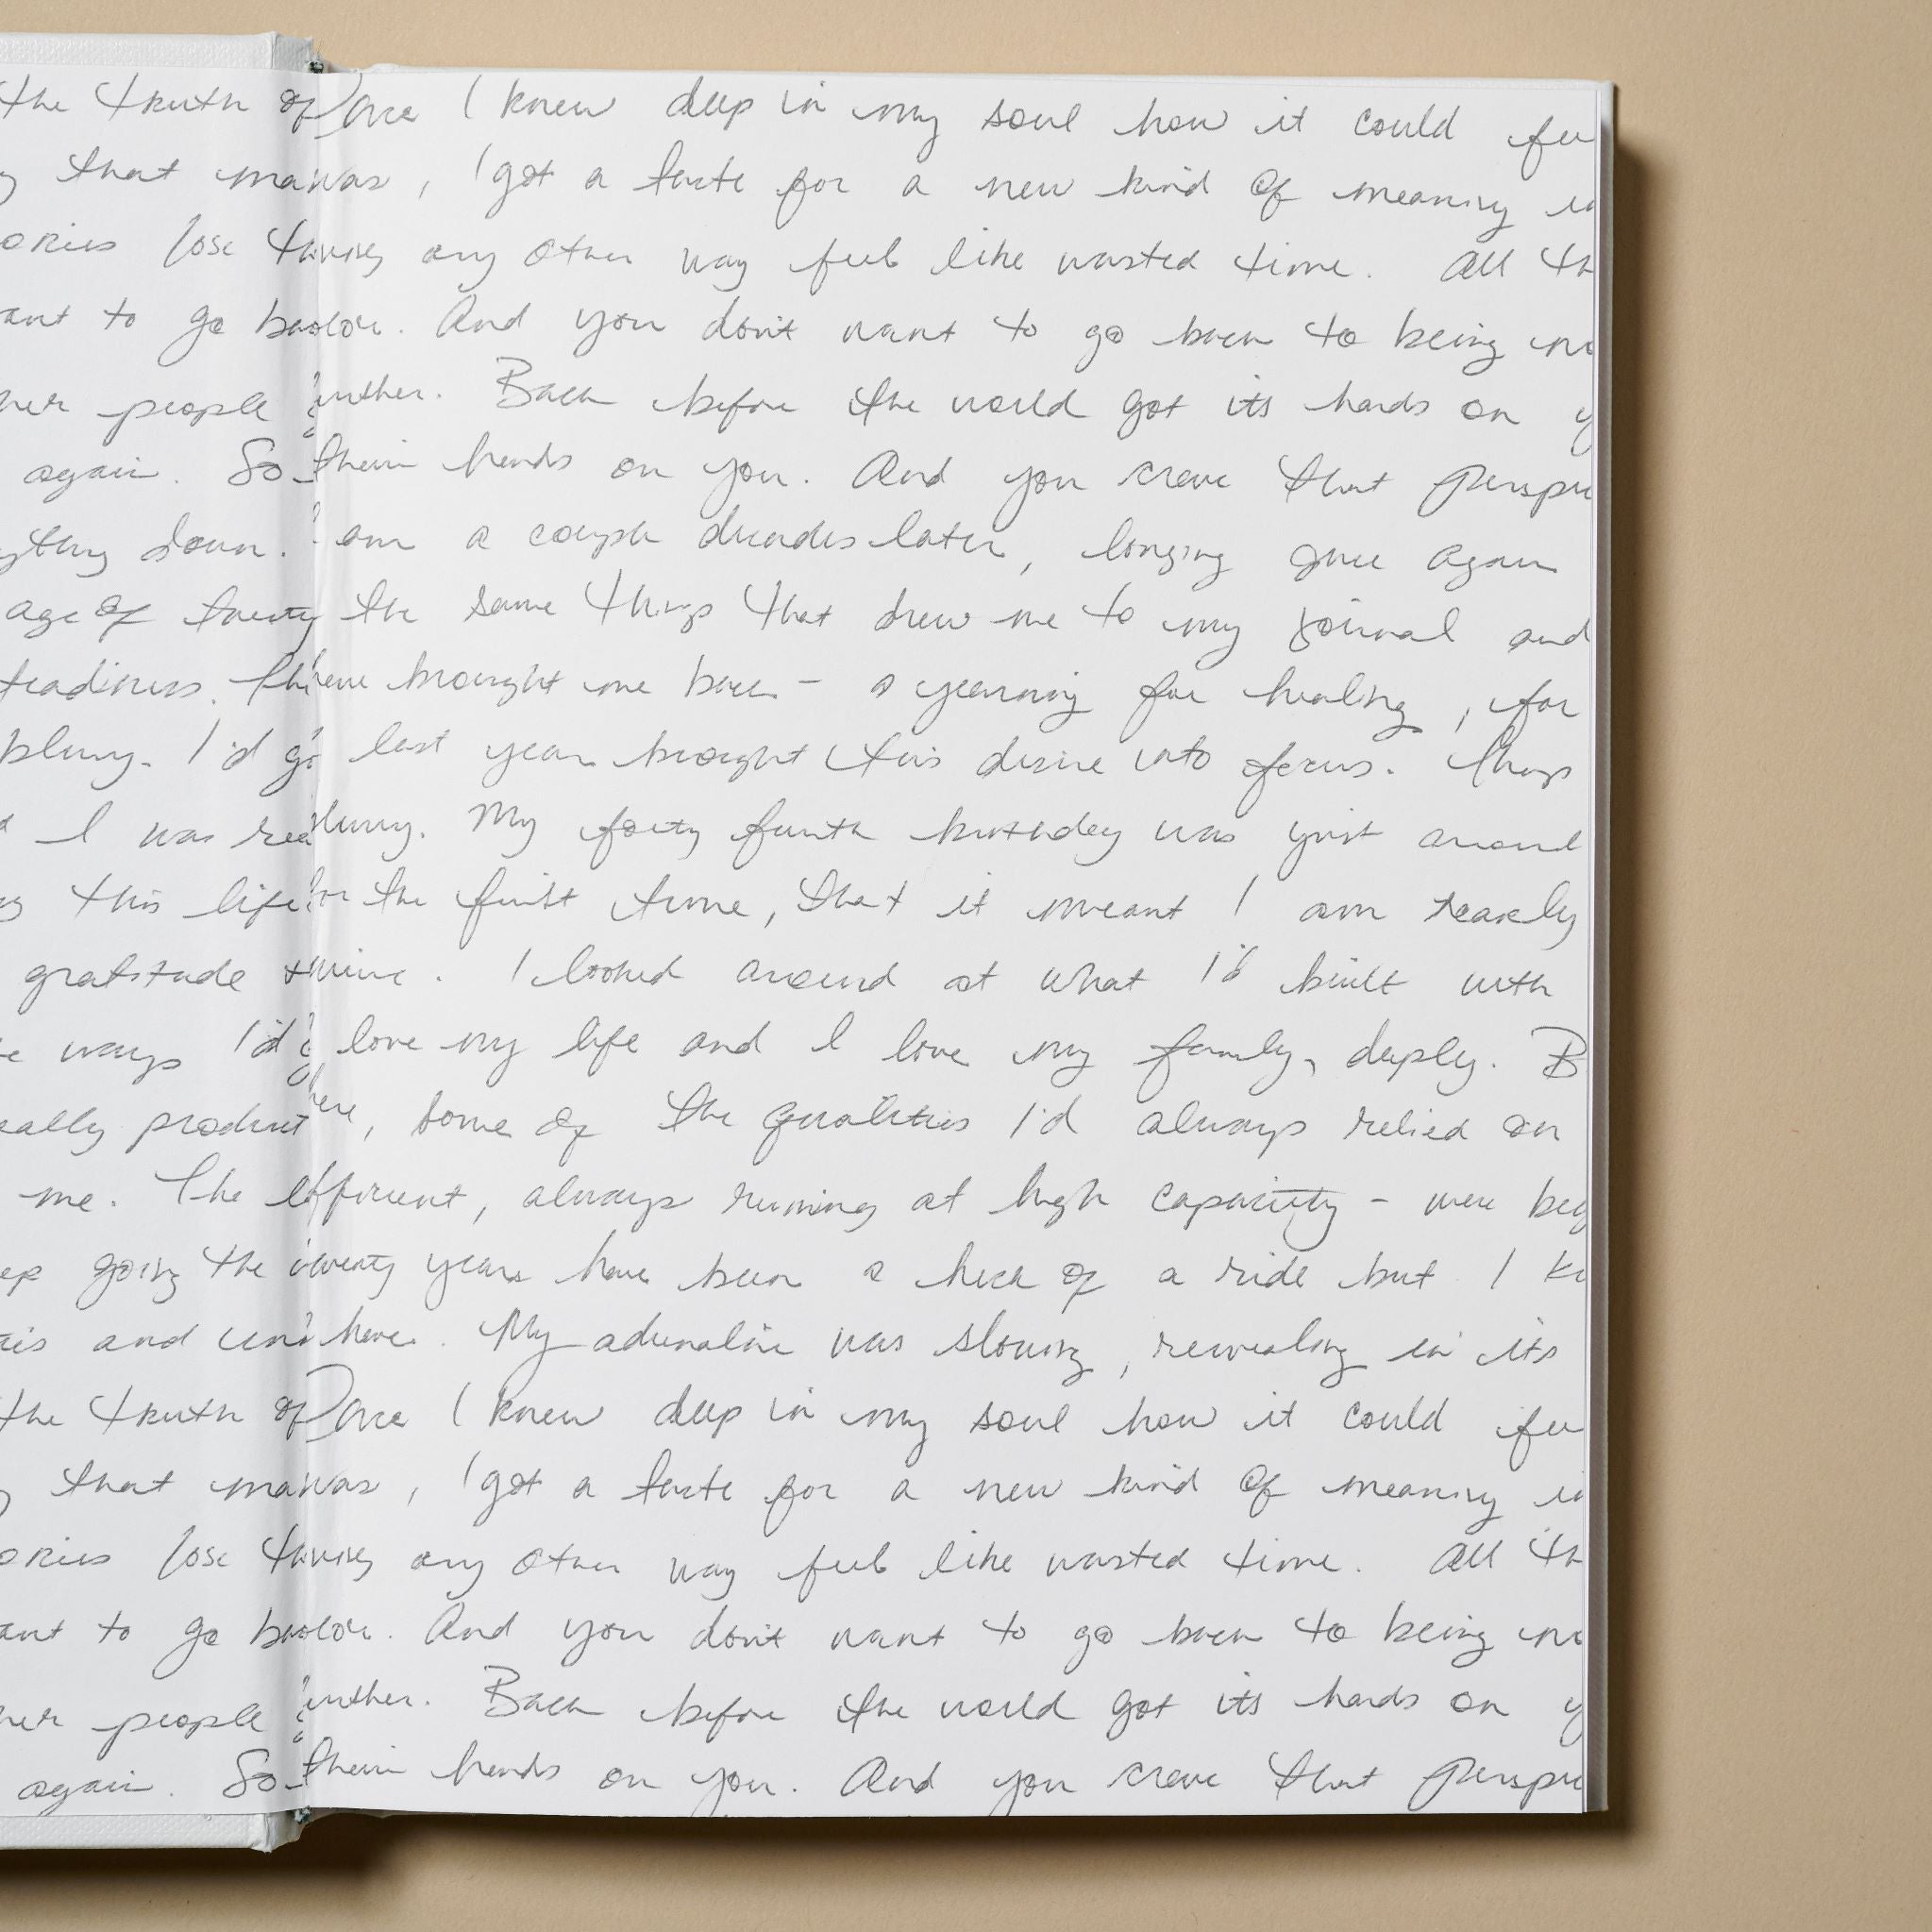 the truth of Once I knew deep in my soul how it could fee
that ma was, I got a taste for a new kind of meaning
ories lose th living any other way feel like wasted time. All th
ant to go ba color. And you don't want to go back to being
her people further. Back before the world got its hands on y
again. So their hands on you. And you crave that perspe
ything down. I am a couple decades later, longing once again
age of twenty the same things that drew me to my journal and
teadiness. Thi have brought me back - a yearning for healing, for
blurry. I'd go last year brought this desire into focus. Things
d I was rea blurry. My forty fourth birthday was just around
this life for the first time, that it meant I am nearly
gratitude mine. I looked around at what I'd built with
e ways I'd I love my life and I love my family, deeply. B
eally product here, some of the qualities I'd always relied on
me. The efficient, always running at high capacity - were beg
ep going the twenty years have been a heck of a ride but I k
his and here. My adrenaline was slowing, revealing in its
the truth of Once I knew deep in my soul how it could fee
that ma was, I got a taste for a new kind of meaning
ories lose th living any other way feel like wasted time. All th
ant to go ba color. And you don't want to go back to being
her people further. Back before the world got its hands on y
again. So their hands on you. And you crave that perspe